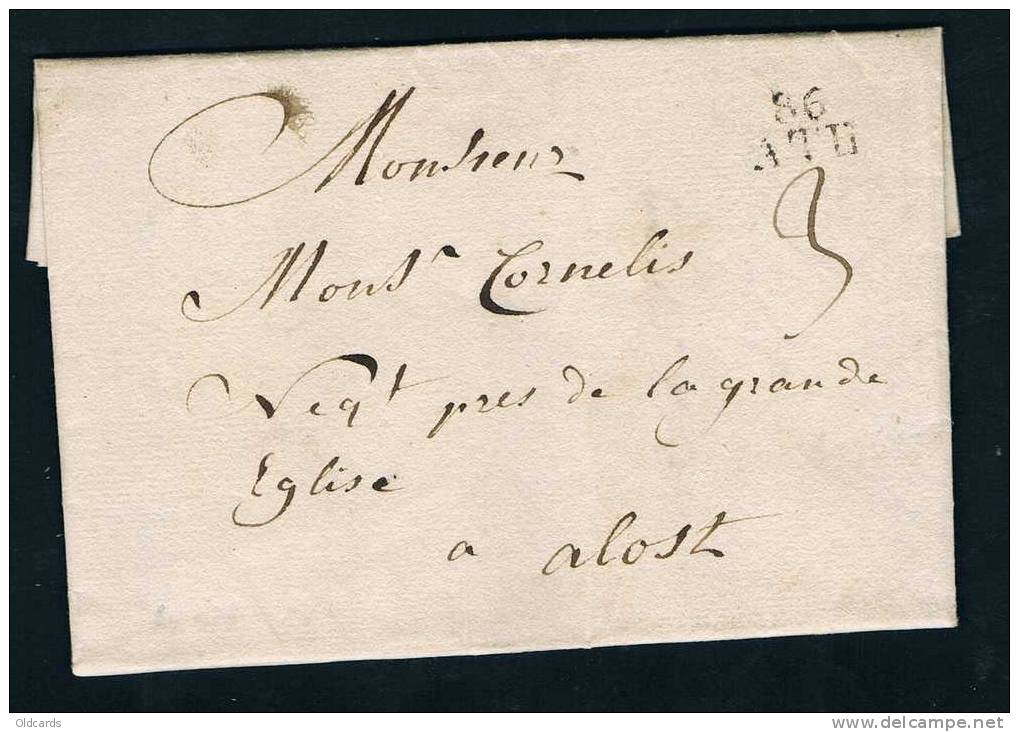 86
ATH
Monsieur
3
Monsr Cornelis
Negt pres de la grande
Eglise
a alost
Oldcards
www.delcampe.net